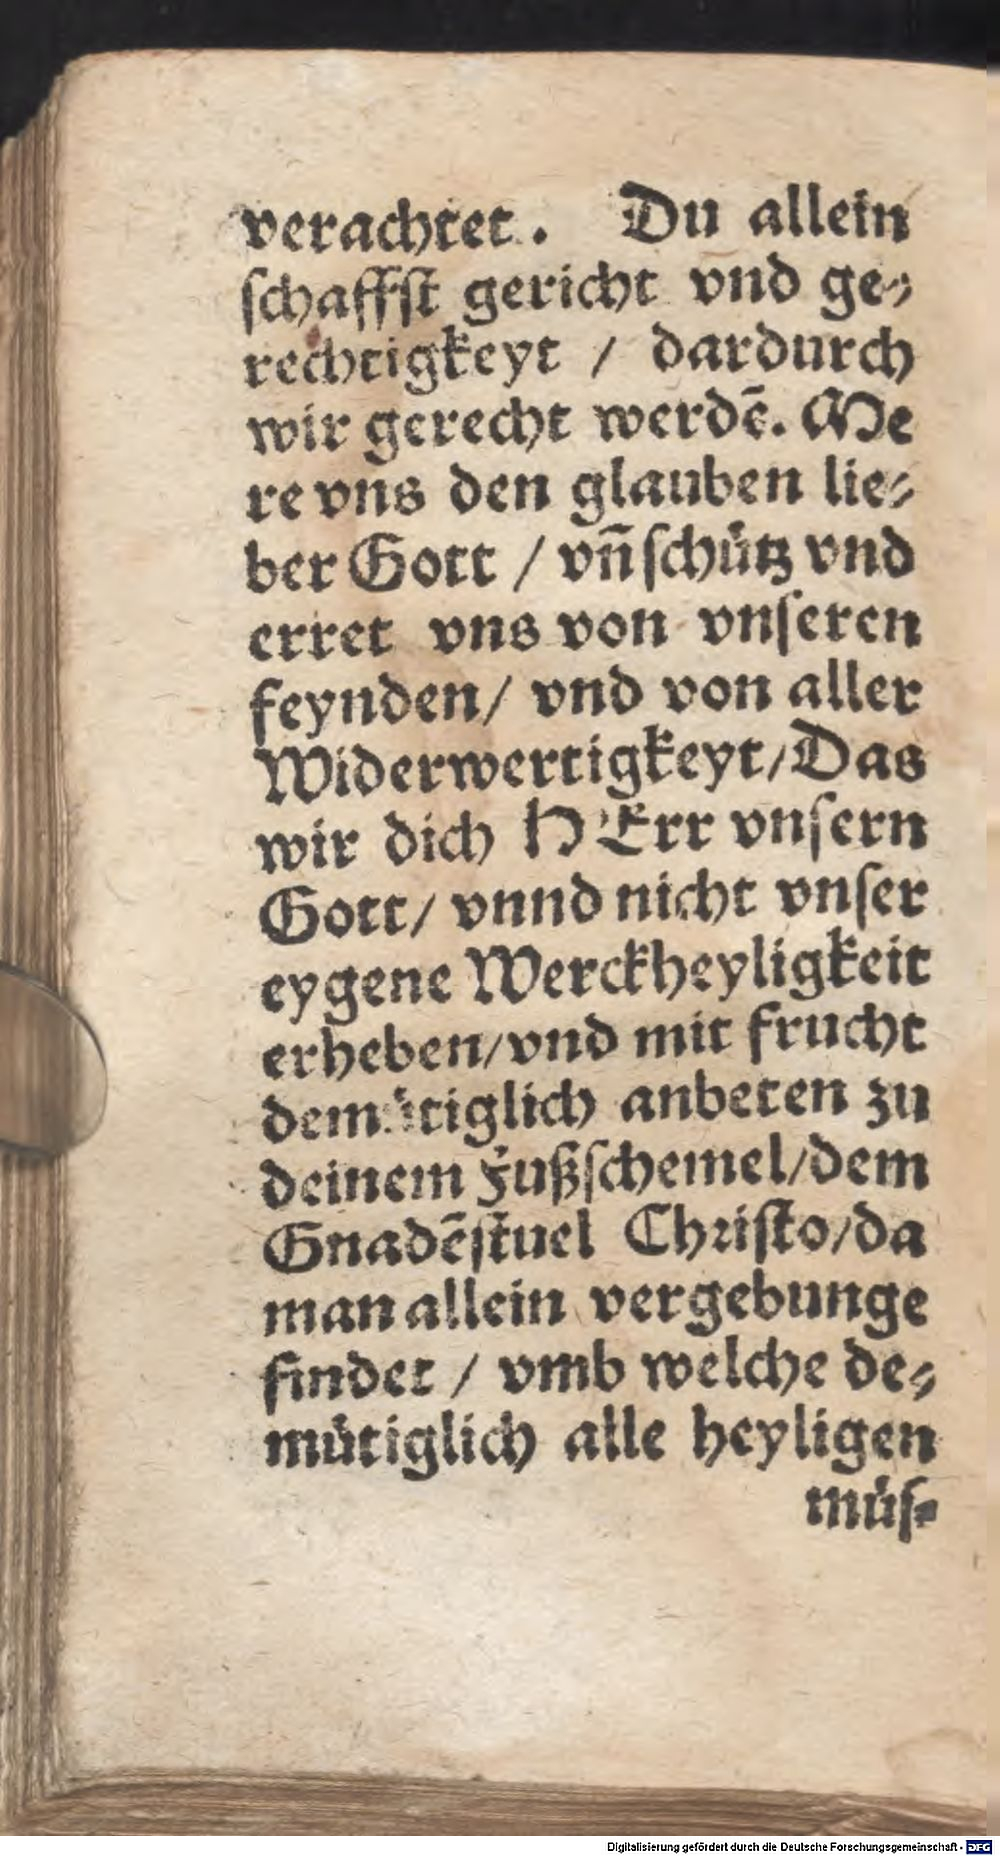 verachtet. Du allein
ſchaffſt gericht vnd ge⸗
rechtigkeyt / dardurch
wir gerecht werdẽ. Me
re vns den glauben lie⸗
ber Gott / vñ ſchuͤtz vnd
erret vns von vnſeren
feynden / vnd von aller
Widerwertigkeyt / Das
wir dich HErr vnſern
Gott / vnnd nicht vnſer
eygene Werckheyligkeit
erheben / vnd mit frucht
demuͤtiglich anbeten zu
deinem Fußſchemel / dem
Gnadẽſtuel Chriſto / da
man allein vergebunge
findet / vmb welche de⸗
muͤtiglich alle heyligen
muͤſ⸗
Digitalisierung gefördert durch die Deutsche Forschungsgemeinschaft - DFG